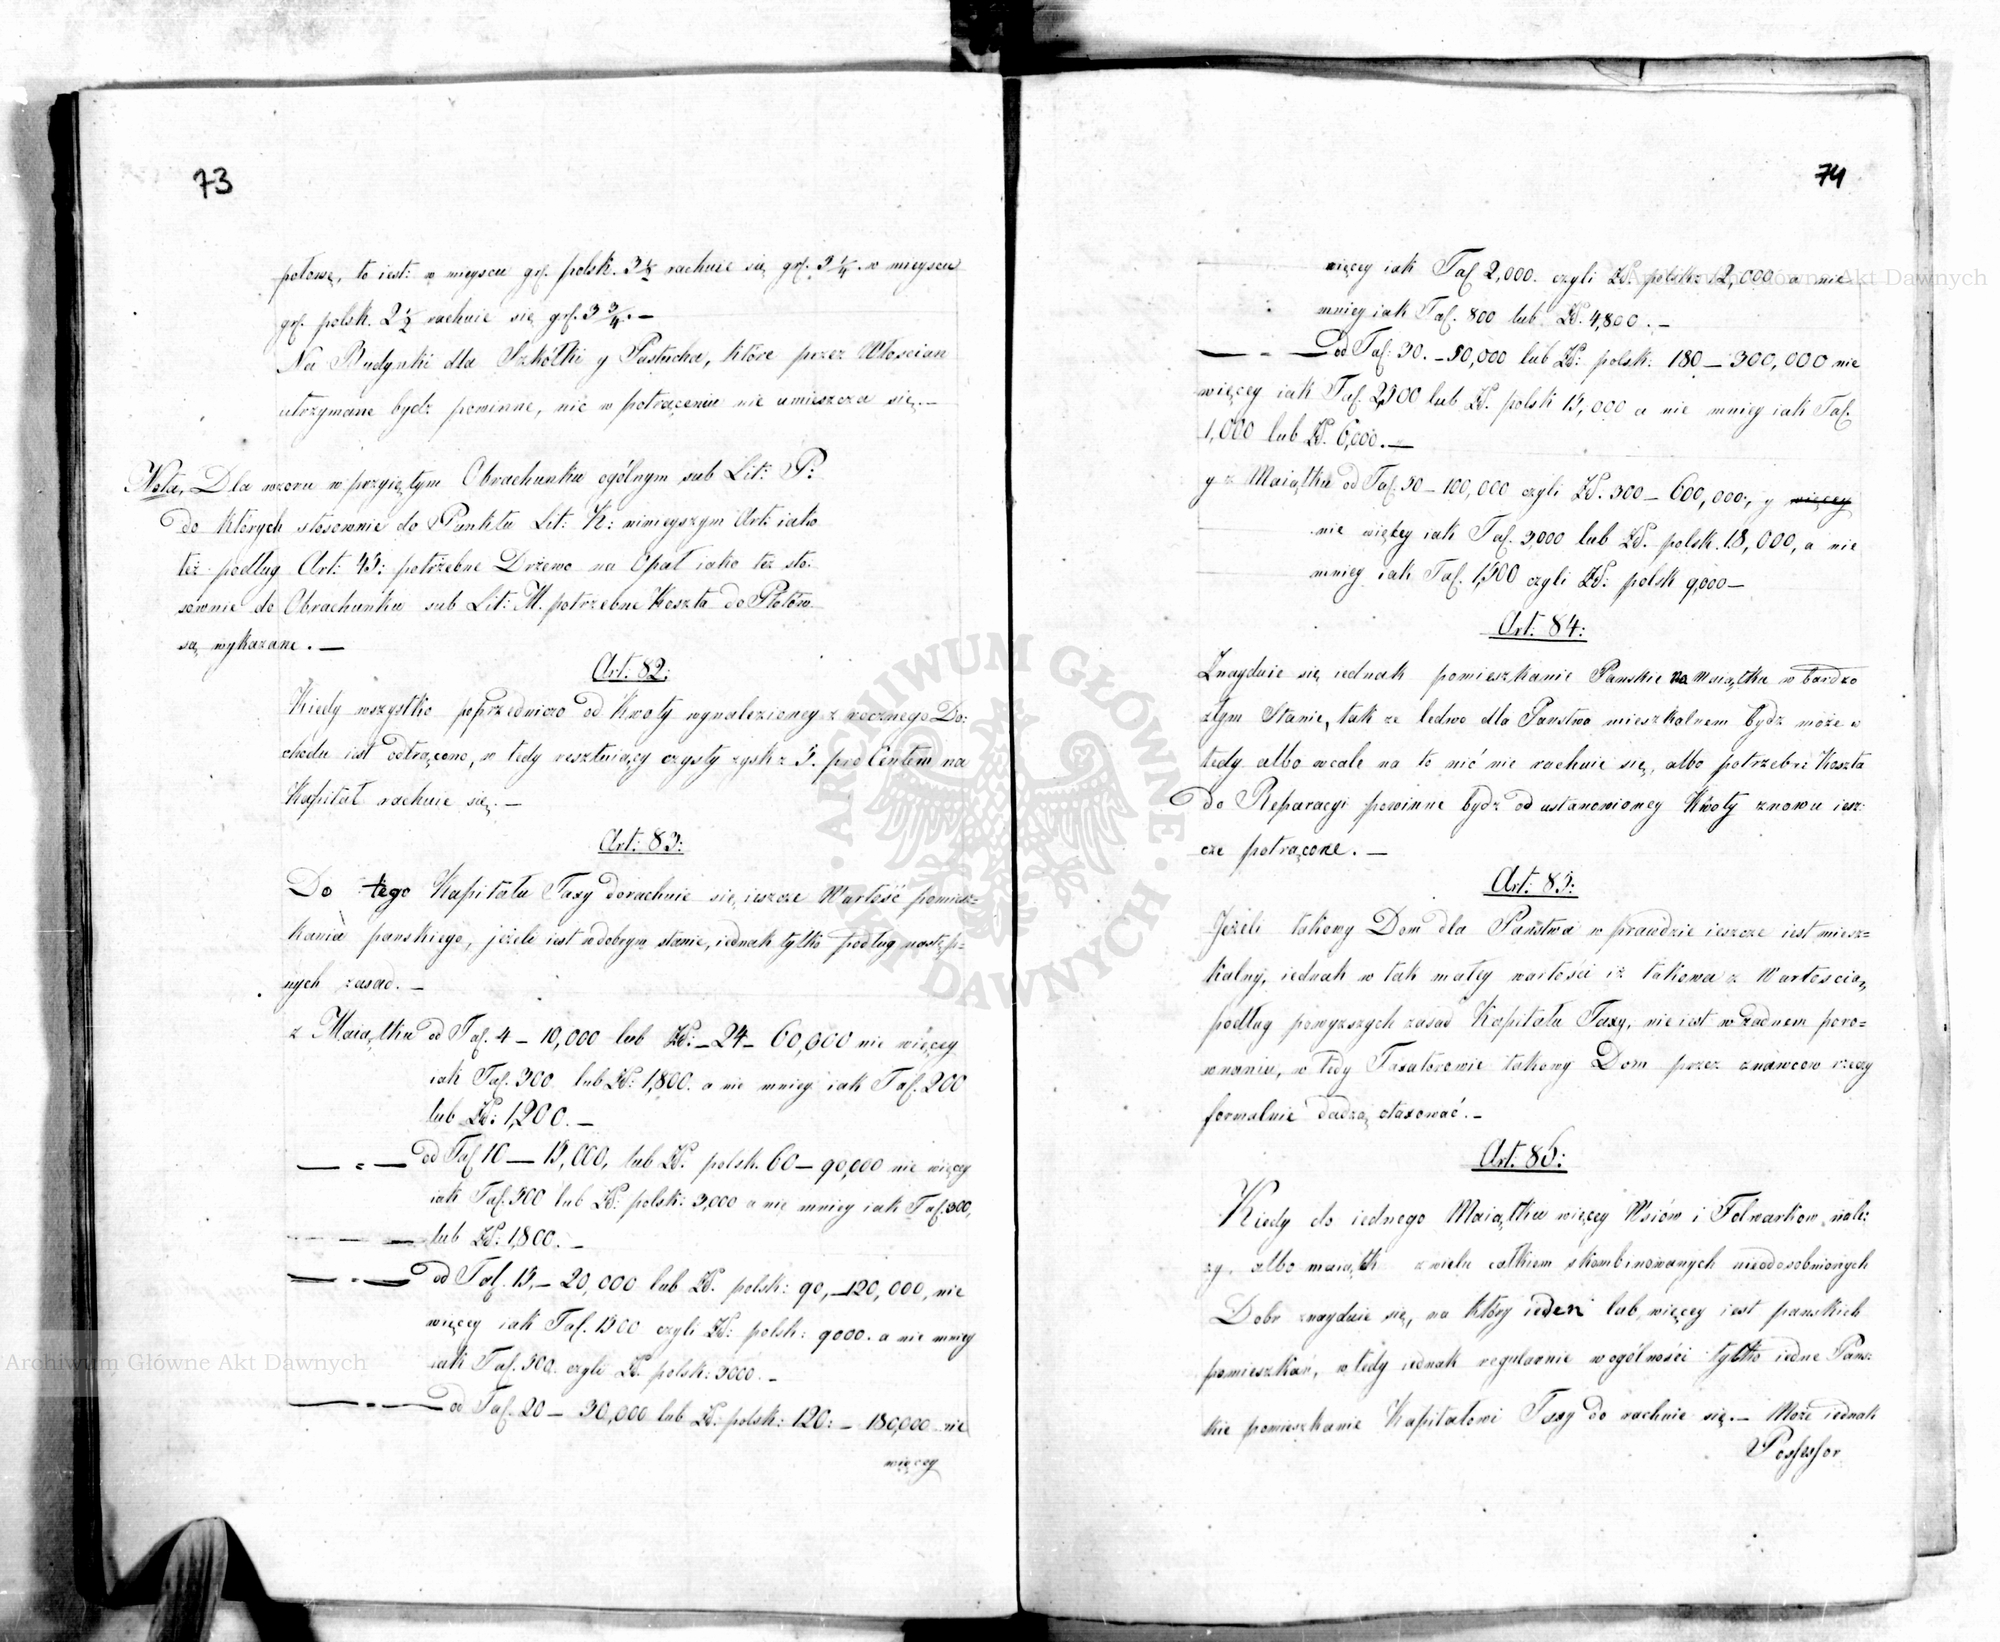 73
połowę, to iest: w mieyscu gr. polsk. 3½ rachuie się gr. 3¼. w mieyscu
gr. polsk. 2½ rachuie się gr. 3¾. —
Na Budynki dla Szkółki y Pastucha, które przez Włoscian
utrzymane bydź powinne, nic w potrąceniu nie umieszcza się. —
Nota, Dla wzoru w przyiętym Obrachunku ogólnym sub Lit: P:
do których stosownie do Punktu Lit: K: ninieyszym Art: iako
też podług Art: 45: potrzebne Drzewo na Opał iako też sto:
sownie do Obrachunku sub Lit: M. potrzebne Koszta do Płotów
są wykazane. —
Art: 82:
Kiedy wszystko poprzedniczo od Kwoty wynalezioney z rocznego Do:
chodu iest odtrącono, w tedy resztuiący czysty zysk z 5. pro Centem na
Kapitał rachuie się. —
Art: 83:
Do tego Kapitału Taxy dorachuie się ieszcze Wartość pomiesz=
kania panskiego, jeżeli iest w dobrym stanie, iednak tylko podług następ=
nych zasad. —
z Maiątku od Taf. 4 – 10,000 lub Zł: – 24 – 60,000 nie więcey
iak Taf. 300 lub Zł: 1,800. a nie mniey iak Taf. 200
lub Zł: 1,200. —
— " — od Taf 10 — 15,000, lub Zł. polsk. 60 – 90,000 nie więcey
iak Taf. 500 lub Zł: polsk: 3,000 a nie mniey iak Taf. 300,
lub Zł: 1,800. —
— " — od Taf. 15, – 20,000 lub Zł. polsk: 90, – 120,000, nie
więcey iak Taf. 1500 czyli Zł: polsk: 9000. a nie mniey
iak Taf. 500. czyli Zł. polsk: 3000. —
— " — od Taf. 20 – 30,000 lub Zł: polsk: 120: – 180,000 nie
więcey
74
więcey iak Taf 2,000. czyli Zł. polsk: 12,000 a nie
mniey iak Taf. 800 lub Zł. 4,800. —
— " — od Taf: 30. – 50,000 lub Zł: polsk: 180 – 300,000 nie
więcey iak Taf. 2,500 lub Zł. polsk 15,000 a nie mniey iak Taf.
1,000 lub Zł. 6,000. —
y z Maiątku od Taf. 50 – 100,000 czyli Zł. 300 – 600,000, y więcey
nie więkey iak Taf. 3,000 lub Zł. polsk. 18,000, a nie
mniey iak Taf. 1,500 czyli Zł: polsk 9,000 —
Art: 84:
Znayduie się iednak pomieszkanie Panskie na Maiątku w bardzo
złym Stanie, tak ze ledwo dla Panstwa mieszkalnem bydz może
tedy albo wcale na to nić nie rachuie się, albo potrzebne Koszta
do Reparacyi powinne bydz od ustanowioney Kwoty znowu iesz:
cze potrącone. —
Art: 85:
Jeżeli takowy Dom dla Państwa w prawdzie ieszcze iest miesz=
kalny, iednak w tak małey wartości iż takowa z Wartoscią,
podług powyzszych zasad Kapitału Taxy, nie iest w żadnem poro=
wnaniu, w tedy Taxatorowie takowy Dom przez znawcow rzeczy
formalnie dadzą otaxować. —
Art: 86:
Kiedy do iednego Maiątku więcey Wsiów i Folwarkow nale:
zy, albo maiątk z wielu całkiem skombinowanych nieodosobnionych
Dobr znayduie się, na który ieden lub więcey iest panskich
pomieszkań, w tedy iednak regularnie w ogólności tylko iedne Pans:
kie pomieszkanie Kapitałowi Taxy do rachuie się. — Może iednak
Possessor
Archiwum Główne Akt Dawnych
Archiwum Główne Akt Dawnych
ARCHIWUM GŁÓWNE · AKT DAWNYCH ·